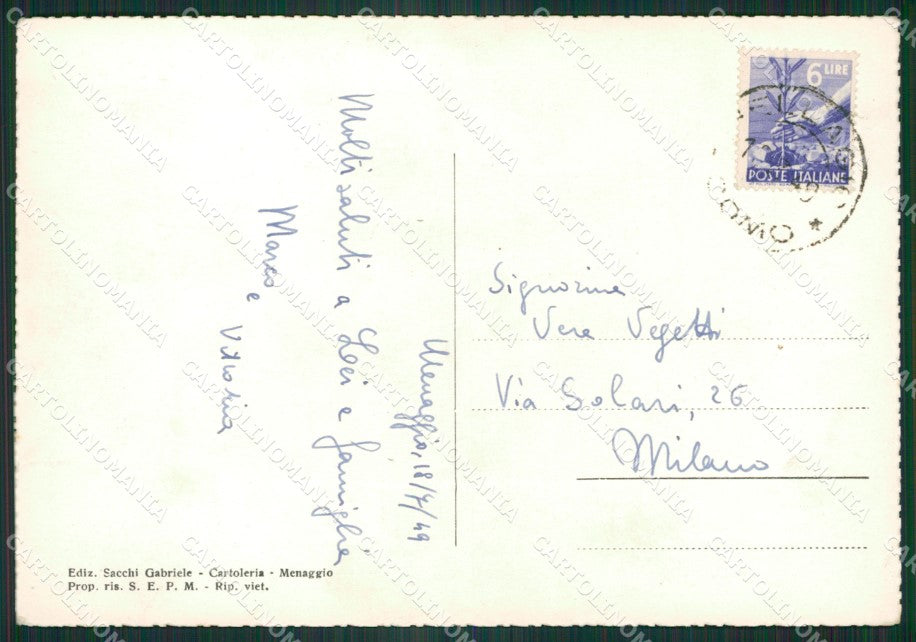 6 LIRE
POSTE ITALIANE
COMO *
Menaggio, 18/7/49
Molti saluti a Lei e famiglia
Marco e Vittorina
Signorina
Vera Vegetti
Via Solari, 26
Milano
Ediz. Sacchi Gabriele - Cartoleria - Menaggio
Prop. ris. S. E. P. M. - Rip. viet.
CARTOLINOMANIA